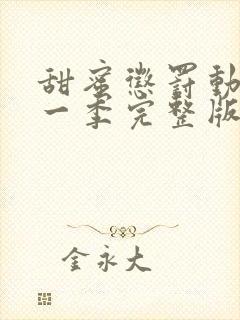 甜蜜懲罰動
一季完整版
金永大